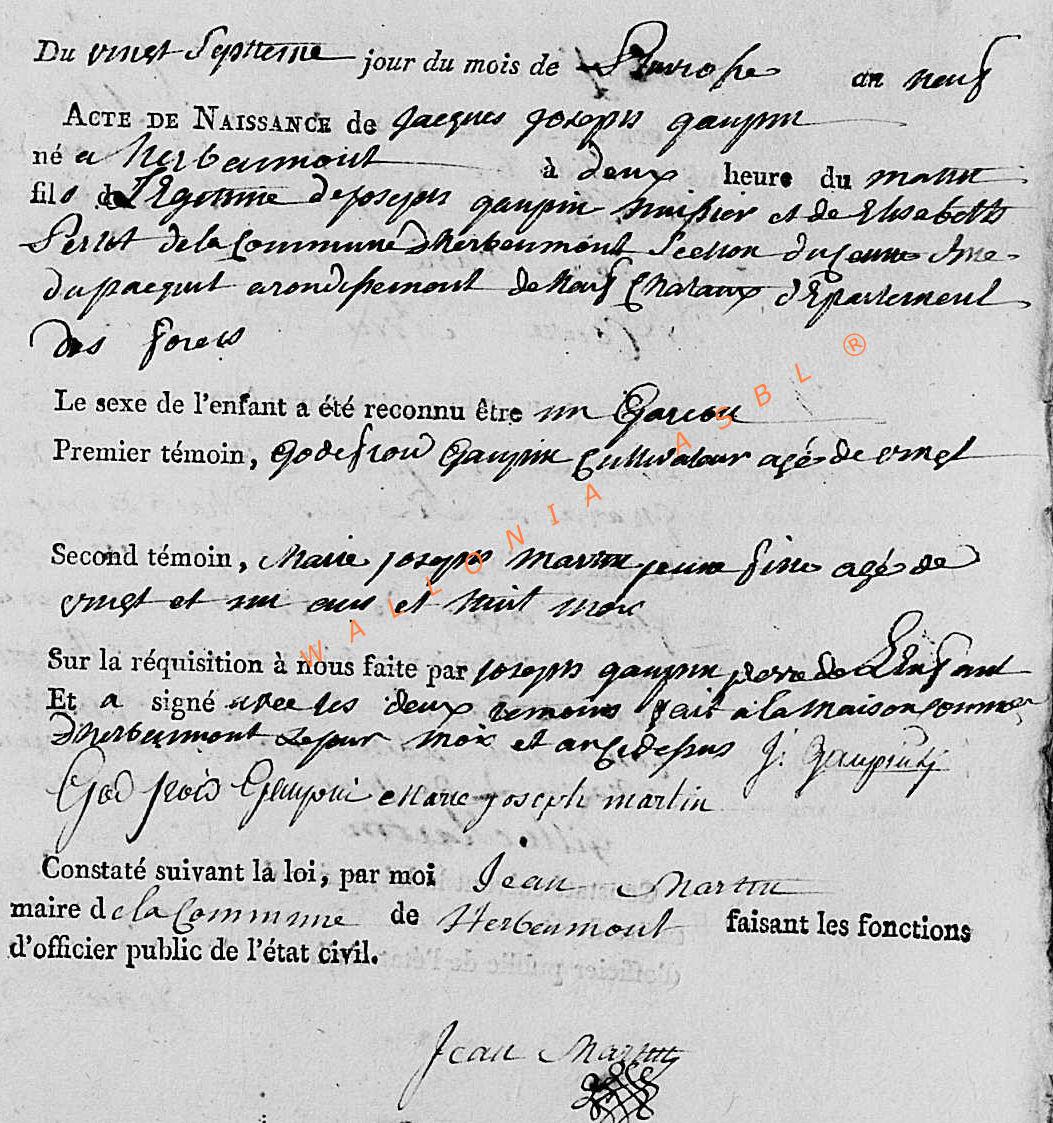 Du vingt Septieme jour du mois de Pluviose an neuf
ACTE DE NAISSANCE de jacques joseph gaupin
né a herbeumont à deux heure du matin
fils de Legitime de joseph gaupin huissier et de Elisabeth
de la Commune d'herbeumont Section du
arondissement de Neuf Chataux d'Epartement
des forets
Le sexe de l'enfant a été reconnu être un Garcon
Premier témoin, godefroid Gaupin Cultivateur agé de vingt
Second témoin, Marie joseph Martin jeune fille agé de
vingt et un ans et huit mois
Sur la réquisition à nous faite par joseph gaupin pere de L'Enfant
Et a signé avec les deux temoins fait a la Maison Commun
d'herbeumont Lejour mois et an Cidessus J: Gaupin
God froid Gaupin Marie joseph martin
Constaté suivant la loi, par moi Jean Martin
maire de la Commune de Herbeumont faisant les fonctions
d'officier public de l'état civil.
Jean Martin
WALLONIA ASBL ®